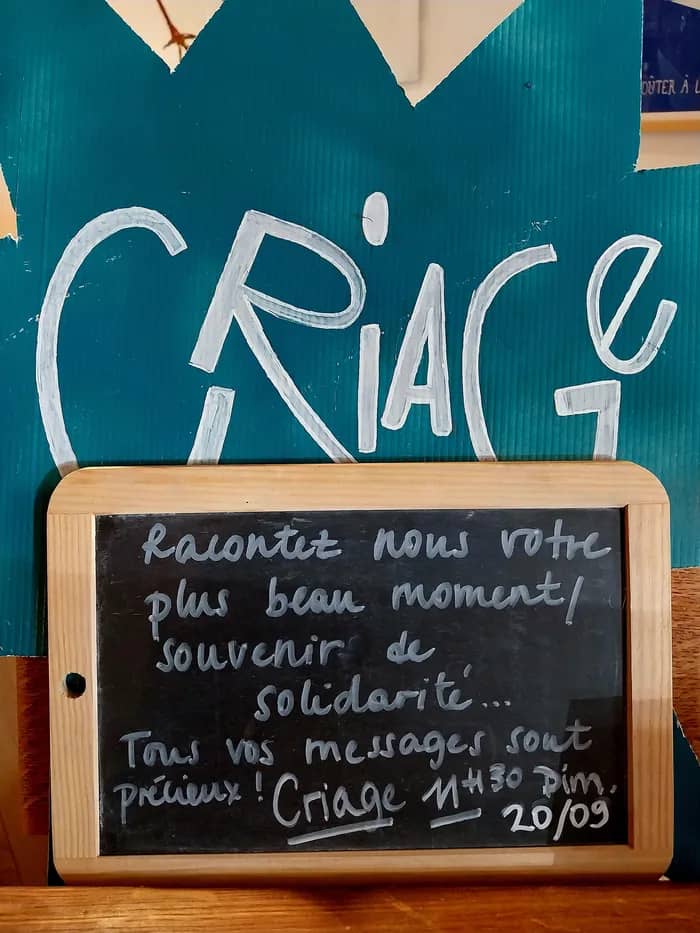 OÛTER À L
CRiAGe
Racontez nous votre
plus beau moment/
souvenir de
solidarité...
Tous vos messages sont
précieux ! Criage 11H30 Dim.
20/09